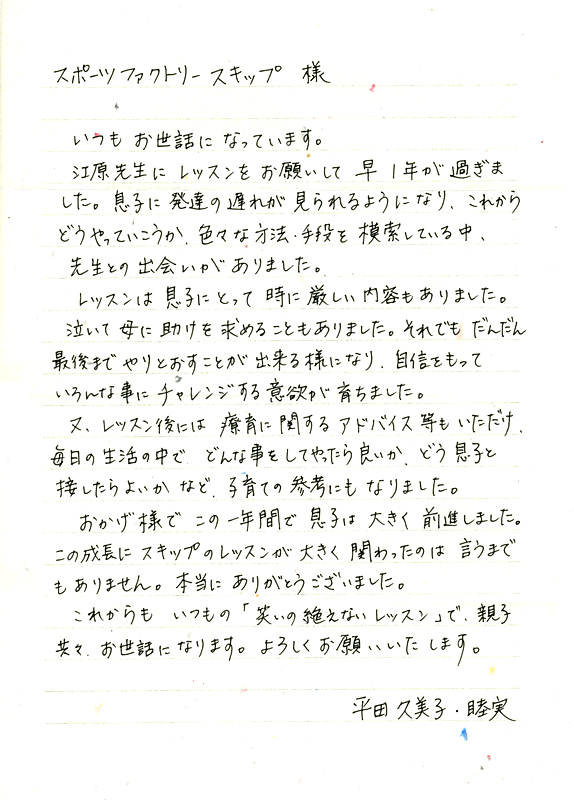 スポーツファクトリースキップ 様
いつも お世話に なっています。
江原先生に レッスンを お願いして 早 1年が 過ぎま
した。息子に 発達の遅れが 見られるようになり、これから
どうやっていこうか、色々な方法・手段を 模索している中、
先生との 出会いがありました。
レッスンは 息子にとって 時に 厳しい内容もありました。
泣いて 母に 助けを 求めることもありました。それでも だんだん
最後まで やりとおすことが 出来る様になり、自信をもって
いろんな事に チャレンジする 意欲が 育ちました。
又、レッスン後には 療育に関する アドバイス等も いただけ、
毎日の生活の中で、どんな事をしてやったら良いか、どう息子と
接したらよいか など、子育ての 参考にも なりました。
おかげ様で この一年間で 息子は 大きく 前進しました。
この成長に スキップのレッスンが 大きく 関わったのは 言うまで
もありません。本当に ありがとうございました。
これからも いつもの「笑いの絶えないレッスン」で、親子
共々、お世話になります。よろしくお願いいたします。
平田久美子・睦実